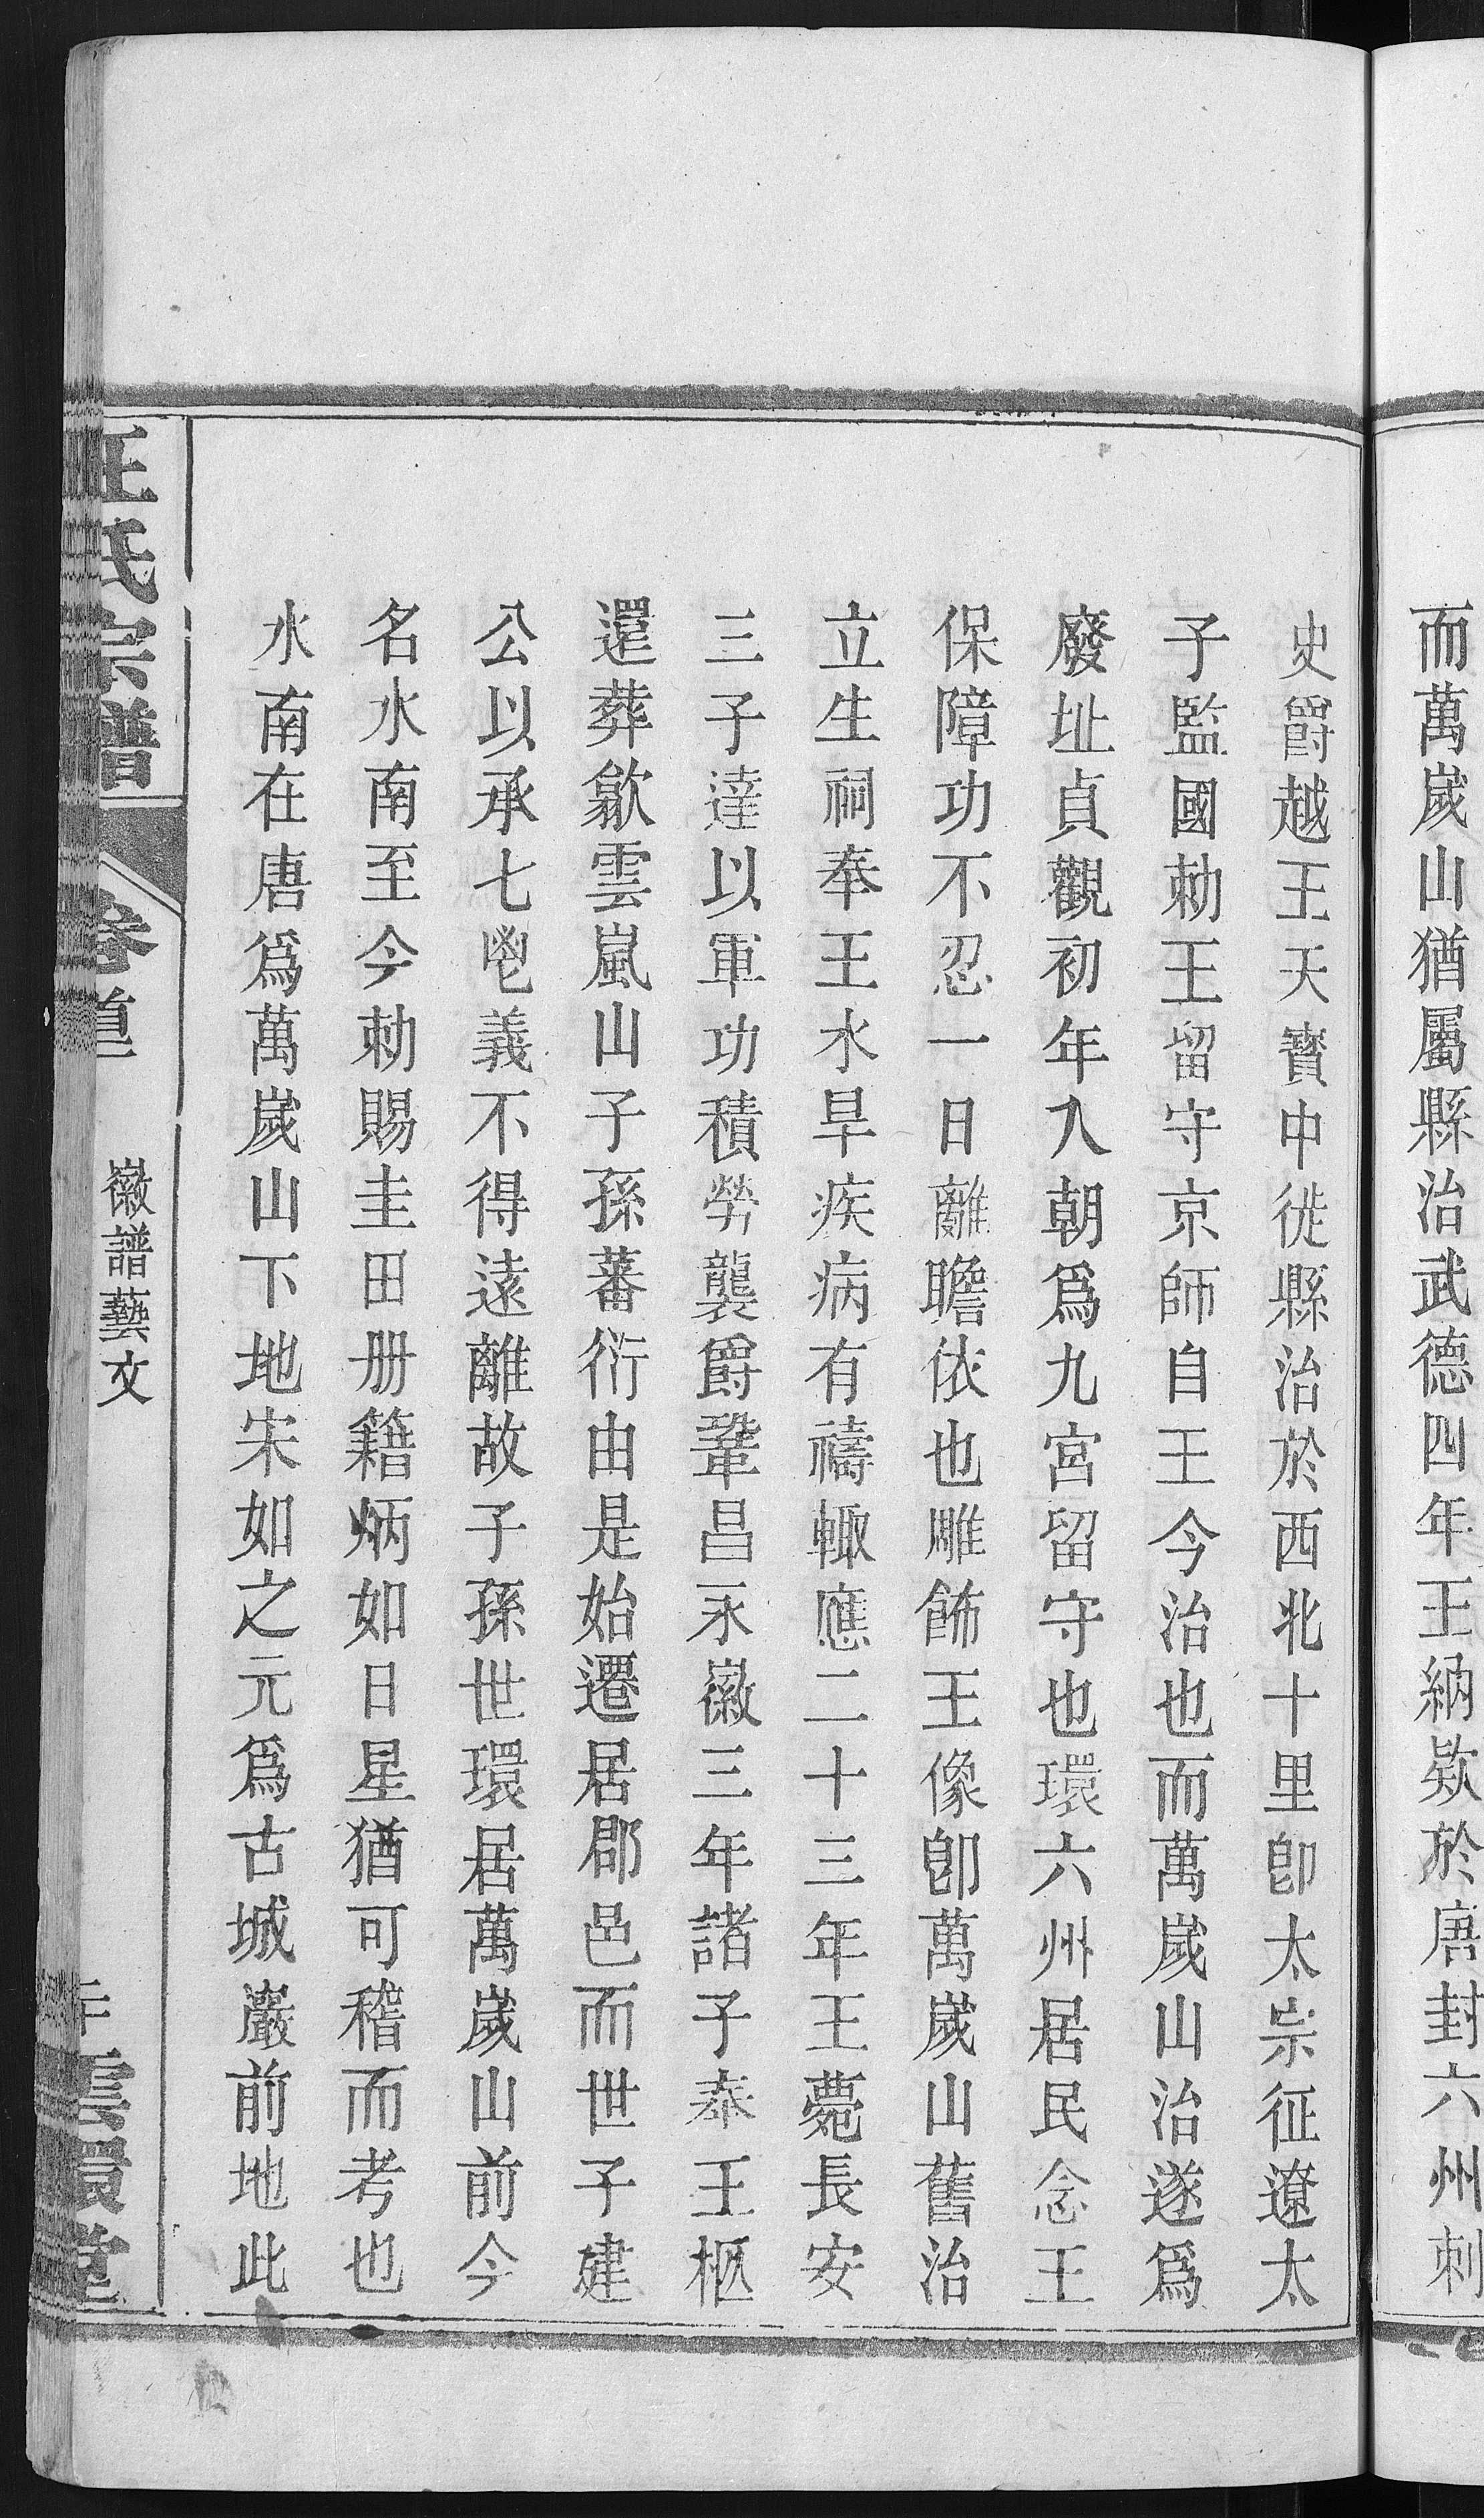 而萬嵗山猶屬縣治武德四年王納欵於唐封六州刺
史爵越王天寳中徙縣治於西北十里卽太宗征遼太
子監國勅王留守京師自王今治也而萬嵗山治遂爲
廢址貞觀初年入朝爲九宮留守也環六州居民念王
保障功不忍一日離瞻依也雕飾王像卽萬嵗山舊治
立生祠奉王水旱疾病有禱輙應二十三年王薨長安
三子達以軍功積勞襲爵鞏昌永徽三年諸子奉王柩
還葬歙雲嵐山子孫蕃衍由是始遷居郡邑而世子建
公以承七鬯義不得遠離故子孫世環居萬嵗山前今
名水南至今勅賜圭田册籍炳如日星猶可稽而考也
水南在唐爲萬嵗山下地宋如之元爲古城巖前地此
汪氏宗譜
卷首
徽譜藝文
雲環堂